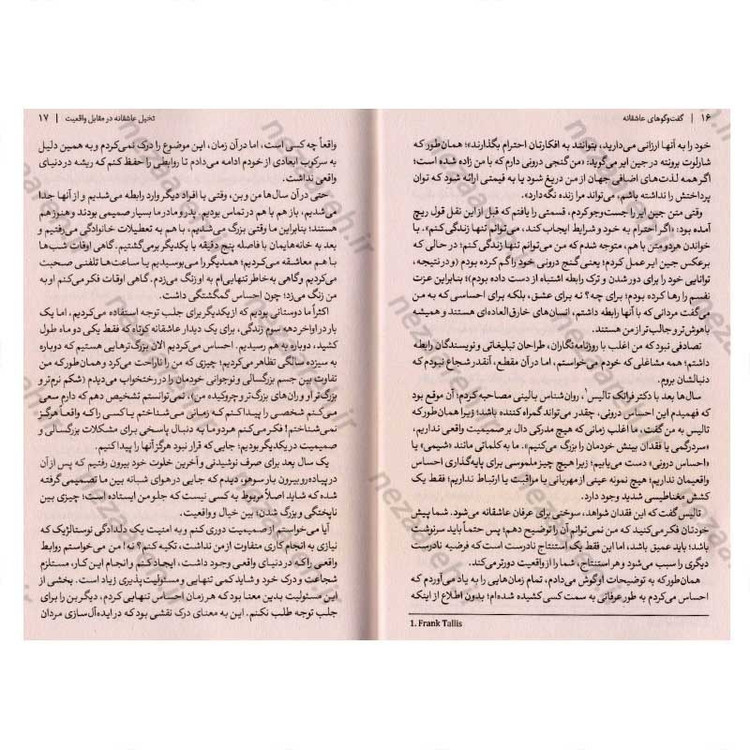 ۱۶ | گفت‌وگوهای عاشقانه
خود را به آنها ارزانی می‌دارید، بتوانند به افکارتان احترام بگذارند»؛ همان‌طور که
شارلوت برونته در جین ایر می‌گوید: «من گنجی درونی دارم که با من زاده شده است؛
اگر همه لذت‌های اضافی جهان از من دریغ شود یا به قیمتی ارائه شود که توان
پرداختش را نداشته باشم، می‌تواند مرا زنده نگه دارد».
وقتی متن جین ایر را جست‌وجو کردم، قسمتی را یافتم که قبل از این نقل قول ریچ
آمده بود: «اگر احترام به خود و شرایط ایجاب کند، می‌توانم تنها زندگی کنم». با
خواندن هر دو متن با هم، متوجه شدم که من می‌توانم تنها زندگی کنم؛ در حالی که
برعکس جین ایر عمل کردم؛ یعنی گنج درونی خود را گم کرده بودم (و در نتیجه،
توانایی خود را برای دور شدن و ترک رابطه اشتباه از دست داده بودم)؛ بنابراین عزت
نفسم را رها کرده بودم؛ برای چه؟ نه برای عشق، بلکه برای احساسی که به من
می‌گفت مردانی که با آنها رابطه داشتم، انسان‌های خارق‌العاده‌ای هستند و همیشه
باهوش‌تر و جالب‌تر از من هستند.
تصادفی نبود که من اغلب با روزنامه‌نگاران، طراحان تبلیغاتی و نویسندگان رابطه
داشتم؛ همه مشاغلی که خودم می‌خواستم، اما در آن مقطع، آنقدر شجاع نبودم که
دنبالشان بروم.
سال‌ها بعد با دکتر فرانک تالیس۱، روان‌شناس بالینی مصاحبه کردم؛ آن موقع بود
که فهمیدم این احساس درونی، چقدر می‌تواند گمراه کننده باشد؛ زیرا همان‌طور که
تالیس به من گفت: «ما اغلب زمانی که هیچ مدرکی دال بر صمیمیت واقعی نداریم،
«سردرگمی یا فقدان بینش خودمان را بزرگ می‌کنیم». ما به کلماتی مانند «شیمی» یا
«احساس درونی» دست می‌یابیم؛ زیرا هیچ چیز ملموسی برای پایه‌گذاری احساس
واقعیمان نداریم؛ هیچ نمونه عینی از مهربانی یا مراقبت یا ارتباط نداریم؛ فقط یک
کشش مغناطیسی شدید وجود دارد.
تالیس گفت که این فقدان شواهد، سوختی برای عرفان عاشقانه می‌شود. شما پیش
خودتان فکر می‌کنید که من نمی‌توانم آن را توضیح دهم؛ پس حتماً باید سرنوشت
باشد؛ باید عمیق باشد، اما این فقط یک استنتاج نادرست است که فرضیه نادرست
دیگری را سبب می‌شود و هر استنتاج، شما را از واقعیت دورتر می‌کند.
همان‌طور که به توضیحات او گوش می‌دادم، تمام زمان‌هایی را به یاد می‌آوردم که
احساس می‌کردم به طور عرفانی به سمت کسی کشیده شده‌ام؛ بدون اطلاع از اینکه
1. Frank Tallis
تخیل عاشقانه در مقابل واقعیت | ۱۷
واقعاً چه کسی است، اما در آن زمان، این موضوع را درک نمی‌کردم و به همین دلیل
به سرکوب ابعادی از خودم ادامه می‌دادم تا روابطی را حفظ کنم که ریشه در دنیای
واقعی نداشت.
حتی در آن سال‌ها من و بن، وقتی با افراد دیگر وارد رابطه می‌شدیم و از آنها جدا
می‌شدیم، باز هم با هم در تماس بودیم. پدر و مادر ما بسیار صمیمی بودند و هنوز هم
هستند؛ بنابراین ما وقتی بزرگ می‌شدیم، با هم به تعطیلات خانوادگی می‌رفتیم و
بعد به خانه‌هایمان با فاصله پنج دقیقه با یکدیگر برمی‌گشتیم. گاهی اوقات شب‌ها
با هم معاشقه می‌کردیم؛ همدیگر را می‌بوسیدیم یا ساعت‌ها تلفنی صحبت
می‌کردیم و گاهی به خاطر تنهایی‌ام به او زنگ می‌زدم. گاهی اوقات فکر می‌کنم او به
من زنگ می‌زد؛ چون احساس گمگشتگی داشت.
اکثراً ما دوستانی بودیم که از یکدیگر برای جلب توجه استفاده می‌کردیم، اما یک
بار در اواخر دهه سوم زندگی، برای یک دیدار عاشقانه کوتاه که فقط یکی دو ماه طول
کشید، دوباره به هم رسیدیم. احساس می‌کردیم الان بزرگ‌ترهایی هستیم که دوباره
به سیزده سالگی تظاهر می‌کردیم؛ چیزی که من را ناراحت می‌کرد و همان‌طور که من
تفاوت بین جسم بزرگسالی و نوجوانی خودمان را در رختخواب می‌دیدم (شکم نرم‌تر و
بزرگ‌تر او و ران‌های بزرگ‌تر و چروکیده من)، نمی‌توانستم تشخیص دهم که دارم سعی
می‌کنم شخصی را پیدا کنم که زمانی می‌شناختم یا کسی را که واقعاً هرگز
نمی‌شناختم! فکر می‌کنم هر دو ما به دنبال پاسخی برای مشکلات بزرگسالی و
صمیمیت در یکدیگر بودیم؛ جایی که قرار نبود هرگز آنها را پیدا کنیم.
یک سال بعد برای صرف نوشیدنی و آخرین خلوت خود بیرون رفتیم که پس از آن
در پیاده‌رو بیرون بار سوهو، دیدم که جایی در هوای شبانه بین ما تصمیمی گرفته
شده که شاید اصلاً مربوط به کسی نیست که جلو من ایستاده است؛ چیزی بین
ناپختگی و بزرگ شدن؛ بین خیال و واقعیت.
آیا می‌خواستم از صمیمیت دوری کنم و به امنیت یک دلدادگی نوستالژیک که
نیازی به انجام کاری متفاوت از من نداشت، تکیه کنم؟ نه! من می‌خواستم روابط
واقعی را که در دنیای واقعی وجود داشت، ایجاد کنم و انجام این کار، مستلزم
شجاعت و درک خود و شاید کمی تنهایی و مسئولیت‌پذیری زیاد است. بخشی از
این مسئولیت بدین معنا بود که هر زمان احساس تنهایی کردم، دیگر بن را برای
جلب توجه طلب نکنم. این به معنای درک نقشی بود که در ایده‌آل‌سازی مردان